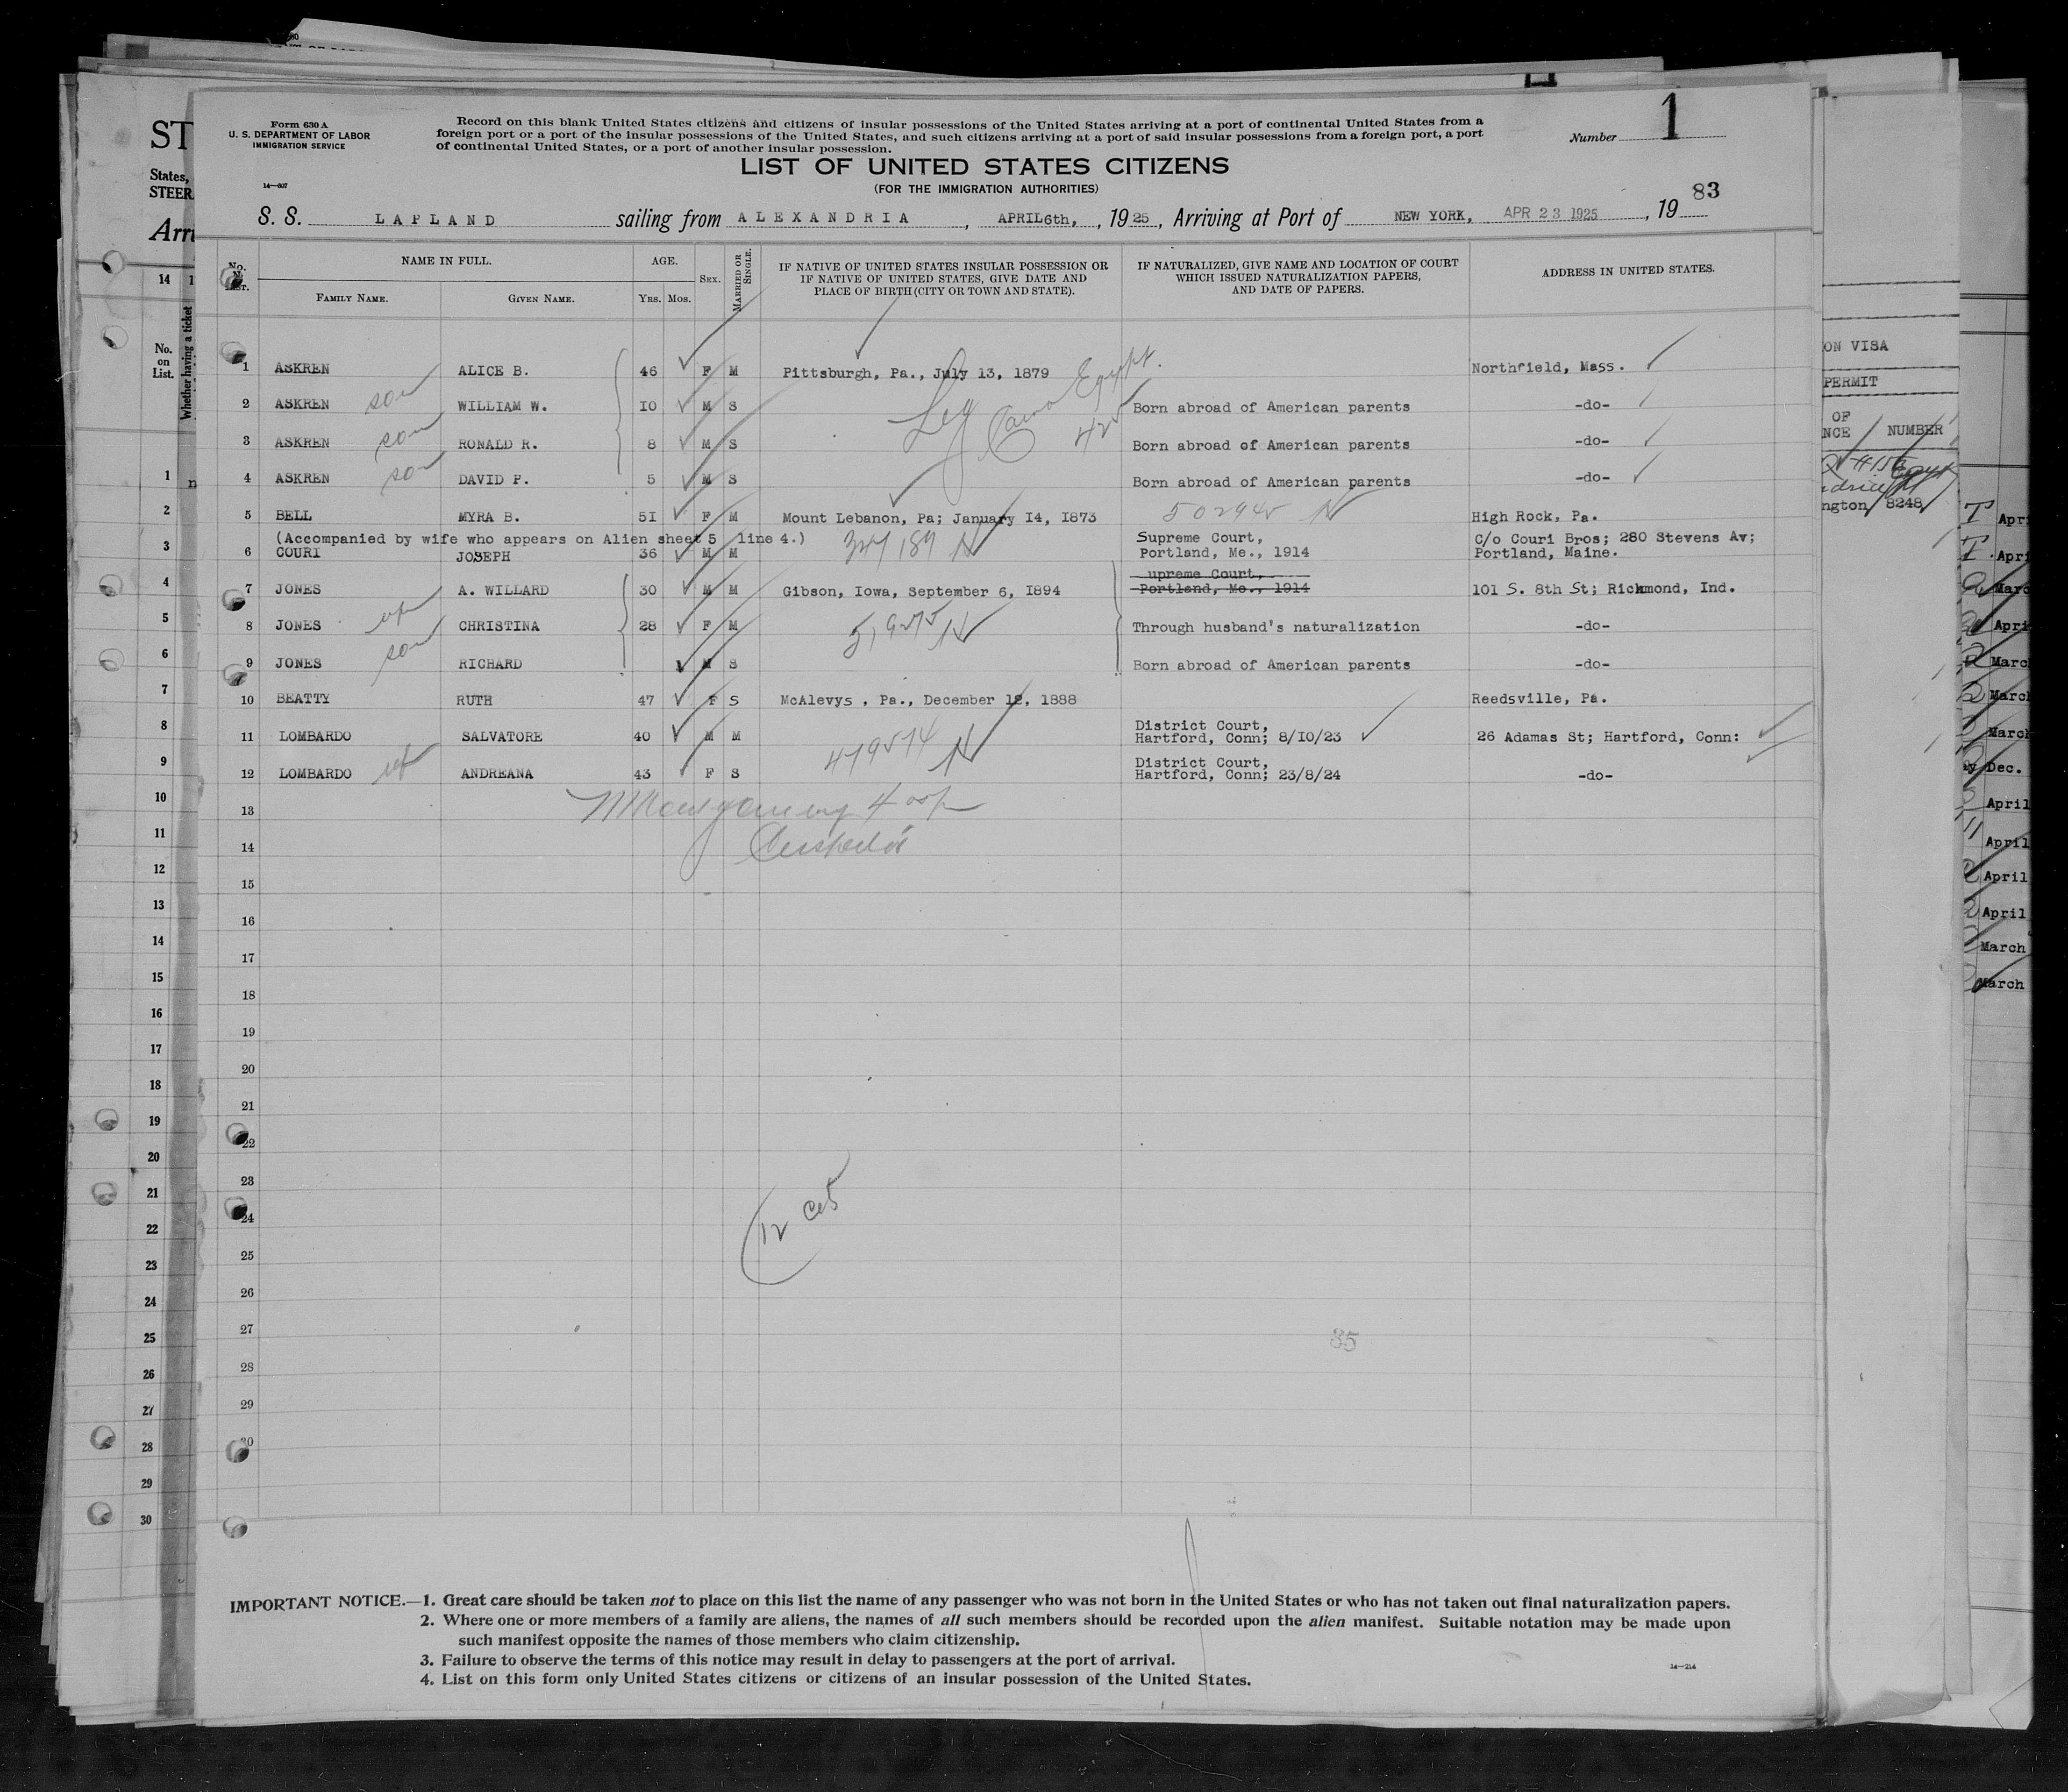 Form 630 A
U. S. DEPARTMENT OF LABOR
IMMIGRATION SERVICE
14—607
Record on this blank United States citizens and citizens of insular possessions of the United States arriving at a port of continental United States from a
foreign port or a port of the insular possessions of the United States, and such citizens arriving at a port of said insular possessions from a foreign port, a port
of continental United States, or a port of another insular possession.
Number 1
LIST OF UNITED STATES CITIZENS
(FOR THE IMMIGRATION AUTHORITIES)
83
S. S. LAPLAND sailing from ALEXANDRIA, APRIL 6th, , 1925, Arriving at Port of NEW YORK, APR 23 1925, 19
No. LIST. NAME IN FULL. AGE. SEX. MARRIED OR SINGLE. IF NATIVE OF UNITED STATES INSULAR POSSESSION OR IF NATIVE OF UNITED STATES, GIVE DATE AND PLACE OF BIRTH (CITY OR TOWN AND STATE). IF NATURALIZED, GIVE NAME AND LOCATION OF COURT WHICH ISSUED NATURALIZATION PAPERS, AND DATE OF PAPERS. ADDRESS IN UNITED STATES.
FAMILY NAME. GIVEN NAME. YRS. MOS.
1 ASKREN ALICE B. 46 F M Pittsburgh, Pa., July 13, 1879 Northfield, Mass.
Leg Cairo Egypt.
2 ASKREN son WILLIAM W. 10 M S Born abroad of American parents -do-
3 ASKREN son RONALD R. 8 M S Born abroad of American parents -do-
4 ASKREN son DAVID P. 5 M S Born abroad of American parents -do-
5 BELL MYRA B. 51 F M Mount Lebanon, Pa; January 14, 1873 High Rock, Pa.
(Accompanied by wife who appears on Alien sheet 5 line 4.)
6 COURI JOSEPH 36 M M Supreme Court, Portland, Me., 1914 C/o Couri Bros; 280 Stevens Av; Portland, Maine.
upreme Court,
Portland, Me., 1914
7 JONES A. WILLARD 30 M M Gibson, Iowa, September 6, 1894 101 S. 8th St; Richmond, Ind.
8 JONES wf CHRISTINA 28 F M Through husband's naturalization -do-
9 JONES son RICHARD M S Born abroad of American parents -do-
10 BEATTY RUTH 47 F S McAlevys , Pa., December 12, 1888 Reedsville, Pa.
11 LOMBARDO SALVATORE 40 M M District Court, Hartford, Conn; 8/10/23 26 Adamas St; Hartford, Conn:
479574
12 LOMBARDO wf ANDREANA 43 F S District Court, Hartford, Conn; 23/8/24 -do-
13
14
15
16
17
18
19
20
21
22
23
24
25
26
27
28
29
30
35
IMPORTANT NOTICE.—1. Great care should be taken not to place on this list the name of any passenger who was not born in the United States or who has not taken out final naturalization papers.
2. Where one or more members of a family are aliens, the names of all such members should be recorded upon the alien manifest. Suitable notation may be made upon
such manifest opposite the names of those members who claim citizenship.
3. Failure to observe the terms of this notice may result in delay to passengers at the port of arrival.
4. List on this form only United States citizens or citizens of an insular possession of the United States.
14—214
ST
States,
STEER
Arri
14
No.
on
List.
Whether having a ticket
1
2
3
4
5
6
7
8
9
10
11
12
13
14
15
16
17
18
19
20
21
22
23
24
25
26
27
28
29
30
ON VISA
PERMIT
OF
NCE NUMBER
ngton 8248
Apri
Apri
Marc
Apri
Marc
March
March
Dec.
April
April
April
April
March
March